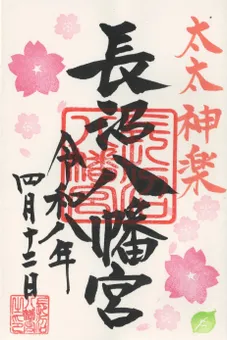 太太神楽
長沼八幡宮
令和八年
四月十二日